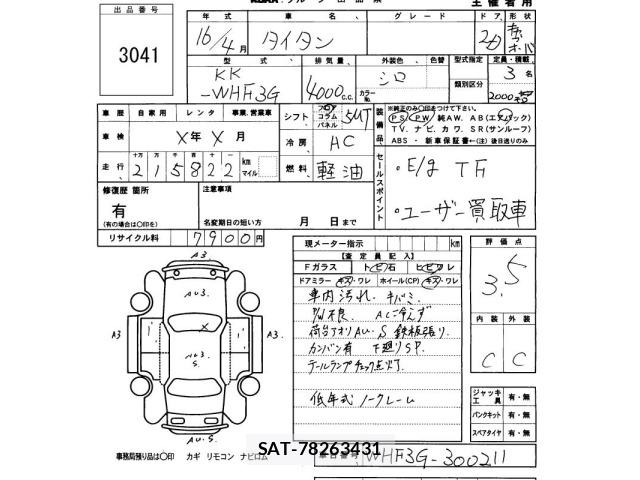 出品番号
3041
年式 車名 グレード ドア 形状
16/4月 タイタン 2D
型式 排気量 外装色 色替 型式指定 定員・積載
KK-WHF3G 4000c.c. カラーNo. シロ 類別区分 3名
2000
車歴 自家用 レンタ 事業、営業車
シフト フロア コラム パネル 5MT
装備品 ※純正のみ〇印をつけて下さい。
PS PW 純AW. AB(エアバック)
TV. ナビ. カワ. SR(サンルーフ)
ABS ・ 新車保証書←(注)後日送りのみ
車検 X年 X月
冷房 AC
走行 十万 万 千 百 十 一 215822 km マイル
燃料 軽油
セールスポイント
・E/g TF
・ユーザー買取車
修復歴 箇所 注意事項
有
(有の場合は〇印を) 名変期日の短い方 月 日まで
リサイクル料 7900円
現メーター指示 km
【査定員記入】
Fガラス トビ石 ヒビワレ
ドアミラー キズ・ワレ ホイール(CP) キズ・ワレ
車内汚れ. キバミ.
P/W不良. ACに冷えず
荷台フオリAU. S 鉄板張り.
カンバン有 下廻りSP.
テールランプチェック点灯.
低年式 ノークレーム
評価点
3.5
内装 外装
C C
ジャッキ 工具 有・無
パンクキット 有・無
スペアタイヤ 有・無
A3
AU3.
A3 A3
AU3. S
AU.S
事務局預り品は〇印 カギ リモコン ナビロム
SAT-78263431
車台番号 WHF3G-300211